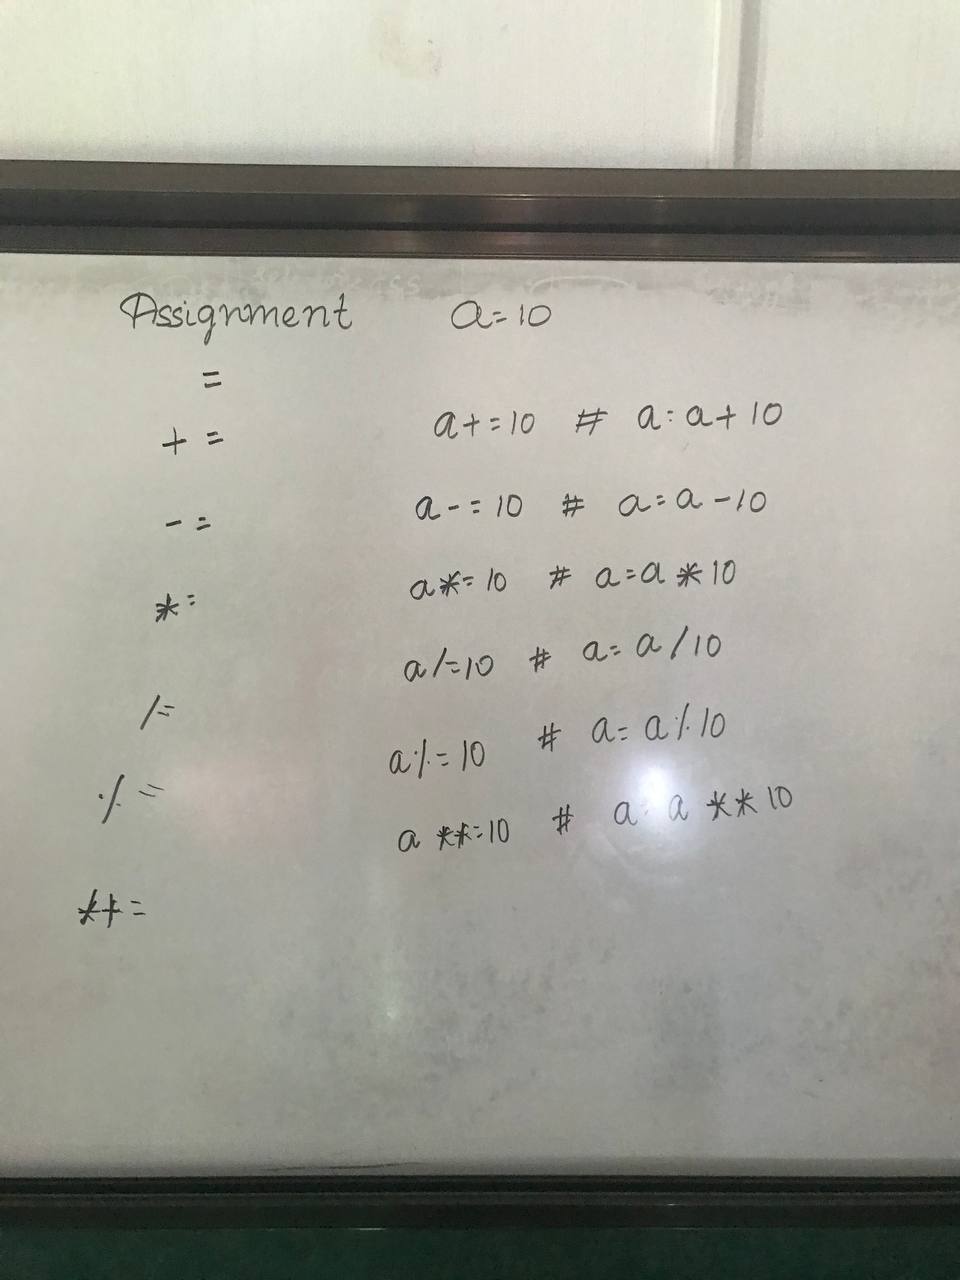 Assignment a=10
=
+= a+=10 # a=a+10
-= a-=10 # a=a-10
*= a*=10 # a=a*10
/= a/=10 # a=a/10
%= a%=10 # a=a%10
**= a**=10 # a=a**10